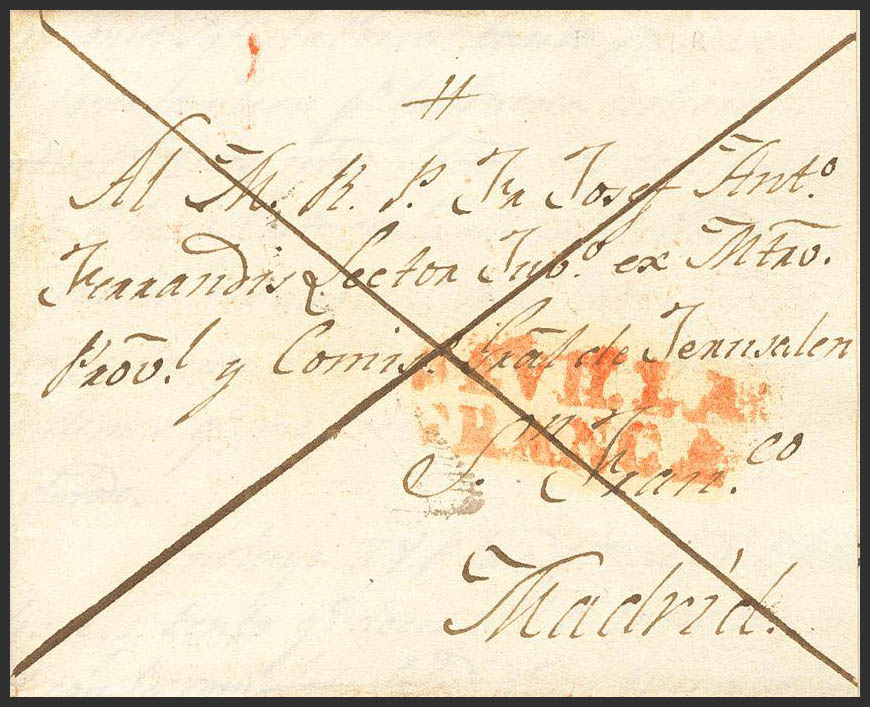 Al M. R. P. Fr Josef Ant.º
Fernandis Lector Jub.º ex Mtrõ.
Prov̄.l y Comis.º Grãl de Jerusalen
SEVILLA
FRANCA
S.n Fran.co
Madrid.